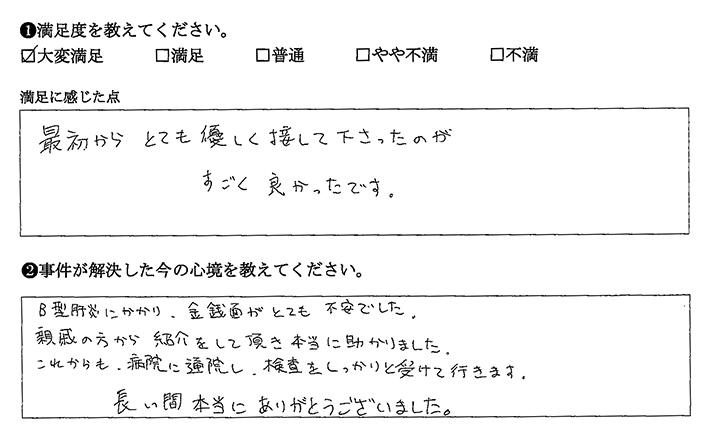 ❶満足度を教えてください。
☑大変満足 □満足 □普通 □やや不満 □不満
満足に感じた点
最初から とても 優しく 接して下さったのが
すごく 良かったです。
❷事件が解決した今の心境を教えてください。
B型肝炎にかかり、金銭面がとても 不安でした。
親戚の方から 紹介をして頂き 本当に助かりました。
これからも、病院に通院し、検査をしっかりと受けて行きます。
長い間 本当に ありがとうございました。